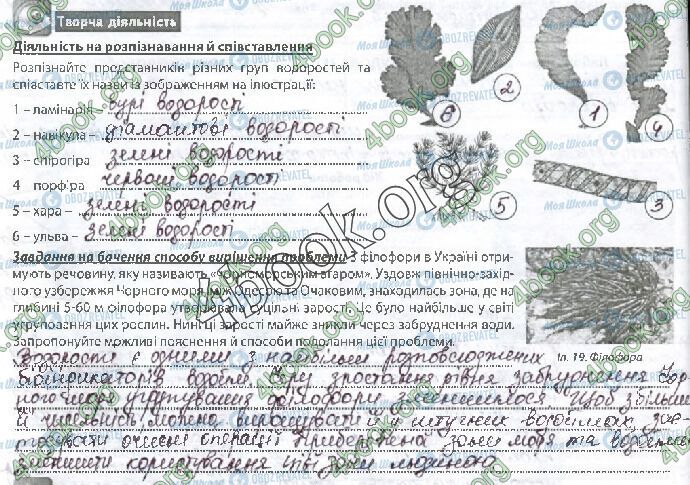 Творча діяльність
Діяльність на розпізнавання й співставлення
Розпізнайте представників різних груп водоростей та
співставте їх назви із зображенням на ілюстрації:
1 – ламінарія – бурі водорості
2 – навікула – діамантові водорості
3 – спірогіра – зелені водорості
4 – порфіра – червоні водорості
5 – хара – зелені водорості
6 – ульва – зелені водорості
6
2
1
4
5
3
Завдання на бачення способу вирішення проблеми З філофори в Україні отри-
мують речовину, яку називають «чорноморським агаром». Уздовж північно-захід-
ного узбережжя Чорного моря, між Одесою та Очаковим, знаходилась зона, де на
глибині 5-60 м філофора утворювала суцільні зарості. Це було найбільше у світі
угруповання цих рослин. Нині ці зарості майже зникли через забруднення води.
Запропонуйте можливі пояснення й способи подолання цієї проблеми.
Іл. 19. Філофора
Водорості є одними з найбільш розповсюджених
біоіндикаторів водойм. Через зростання рівня забруднення Чор-
ного моря угрупування філофори зменшилося. Щоб збільши
її чисельність, можна вирощувати її у штучних водоймах, зас-
тосувати очисні операції прибережної зони моря та водойм
зменшити користування цієї зони людиною.
4book.org
Моя Школа
OBOZREVATEL